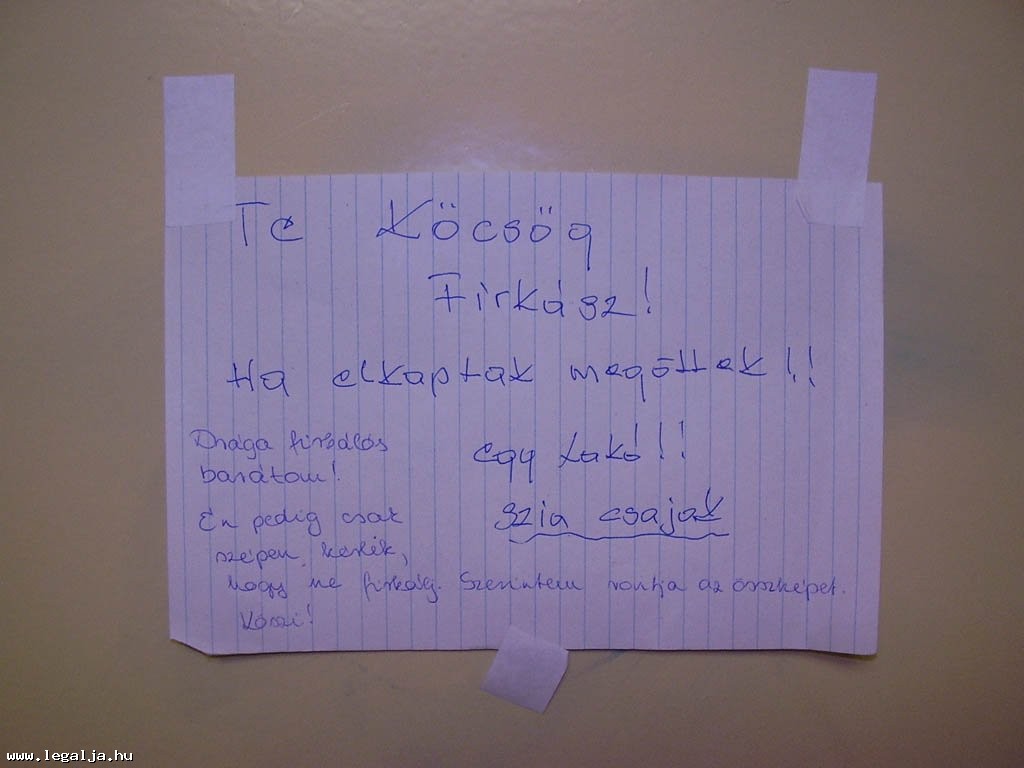 Te Köcsög
Firkász!
Ha elkaptak megöttek!!
egy Lakó!!
szia csajok
Drága firkálós
barátom!
Én pedig csak
szépen kérlek,
hogy ne firkálj. Szerintem rontja az összképet.
Köszi!
www.legalja.hu